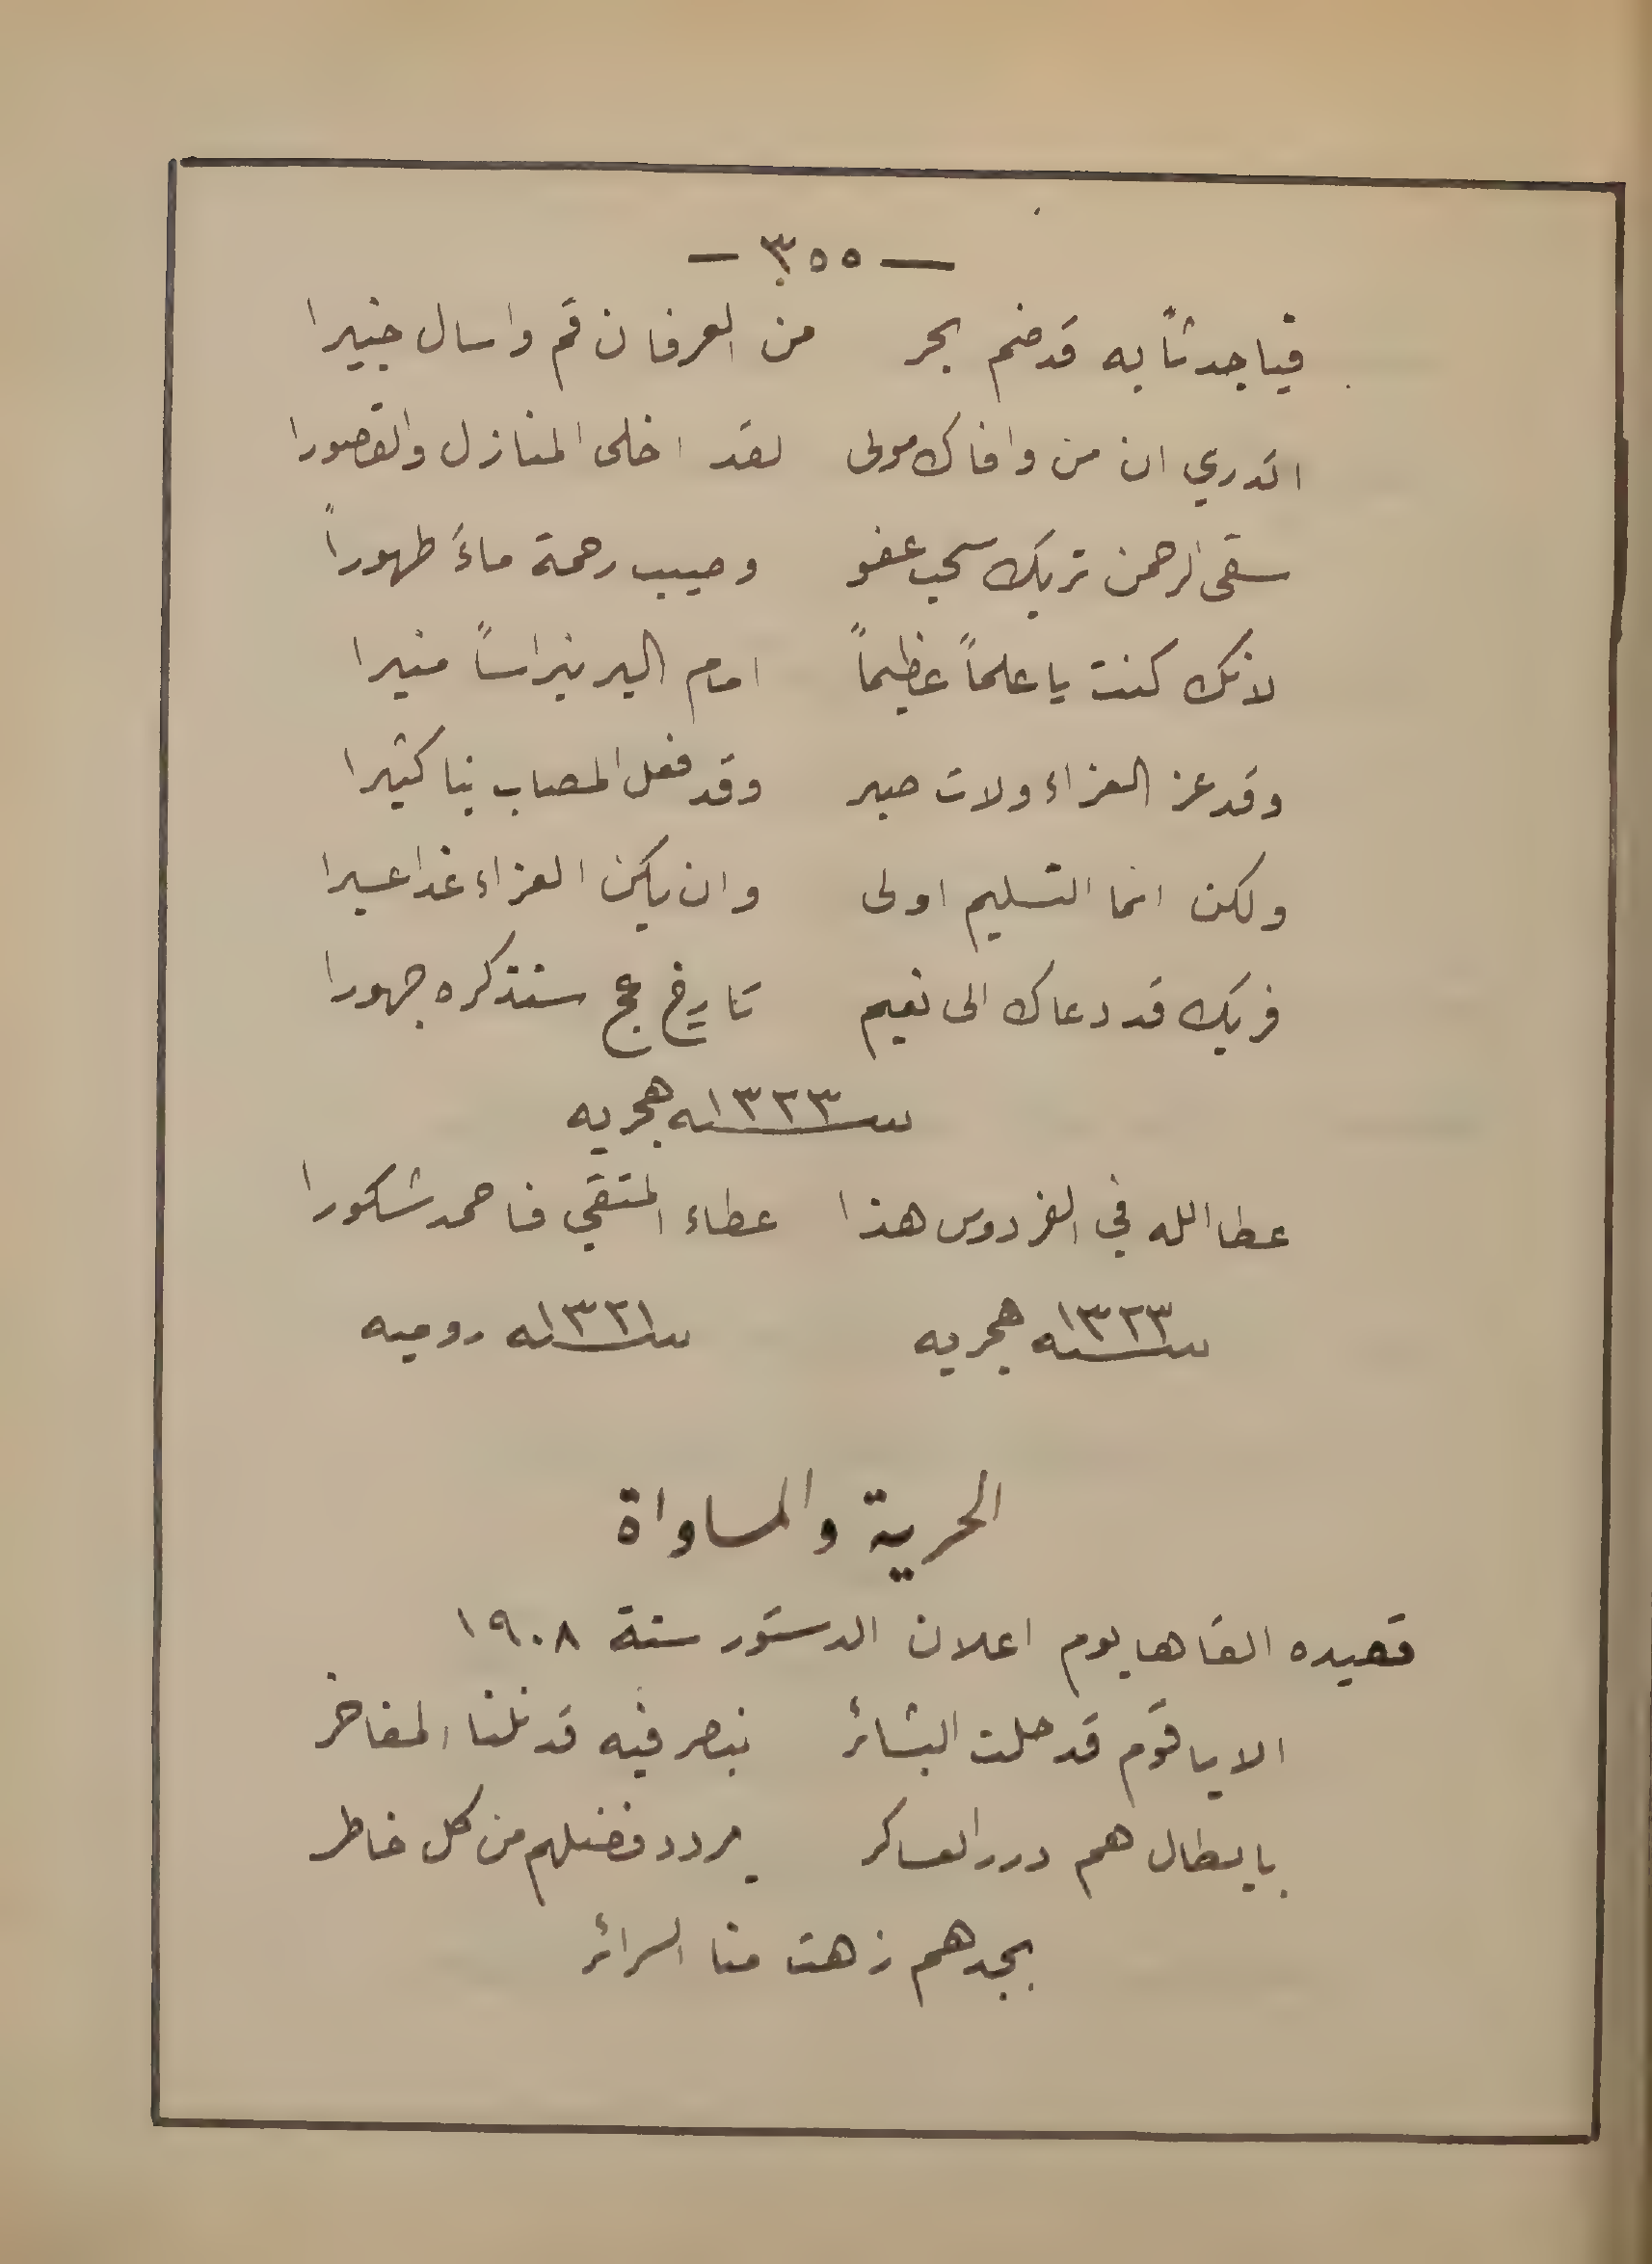 — ٣٥٥ —
فيا جدثاً به قد ضم بحر من العرفان قم واسال خبيرا
اتدري ان من وافاك مولى لقد اخلى المنازل والقصورا
سقى الرحمن تربك سحب عفو وصيب رحمة ماءً طهوراً
لانك كنت يا علماً عظيماً امام البر نبراساً منيرا
وقد عز العزاء ولات صبر وقد فعل المصاب بنا كثيرا
ولكن انما التسليم اولى وان يكن العزاء غدا عسيرا
فربك قد دعاك الى نعيم تاريخ عج ستذكره جهورا
سنه ١٣٢٣ هجريه
عطا الله في الفردوس هذا عطاء المتقي فاحمد شكورا
سنه ١٣٢٣ هجريه سنه ١٣٢١ روميه
الحرية والمساواة
قصيده القاها يوم اعلان الدستور سنة ١٩٠٨
الا يا قوم قد حلت البشائر بنصر فيه قد نلنا المفاخر
بابطال هم درر العساكر يردد فضلهم من كل خاطر
بجدهم زهت منا السرائر